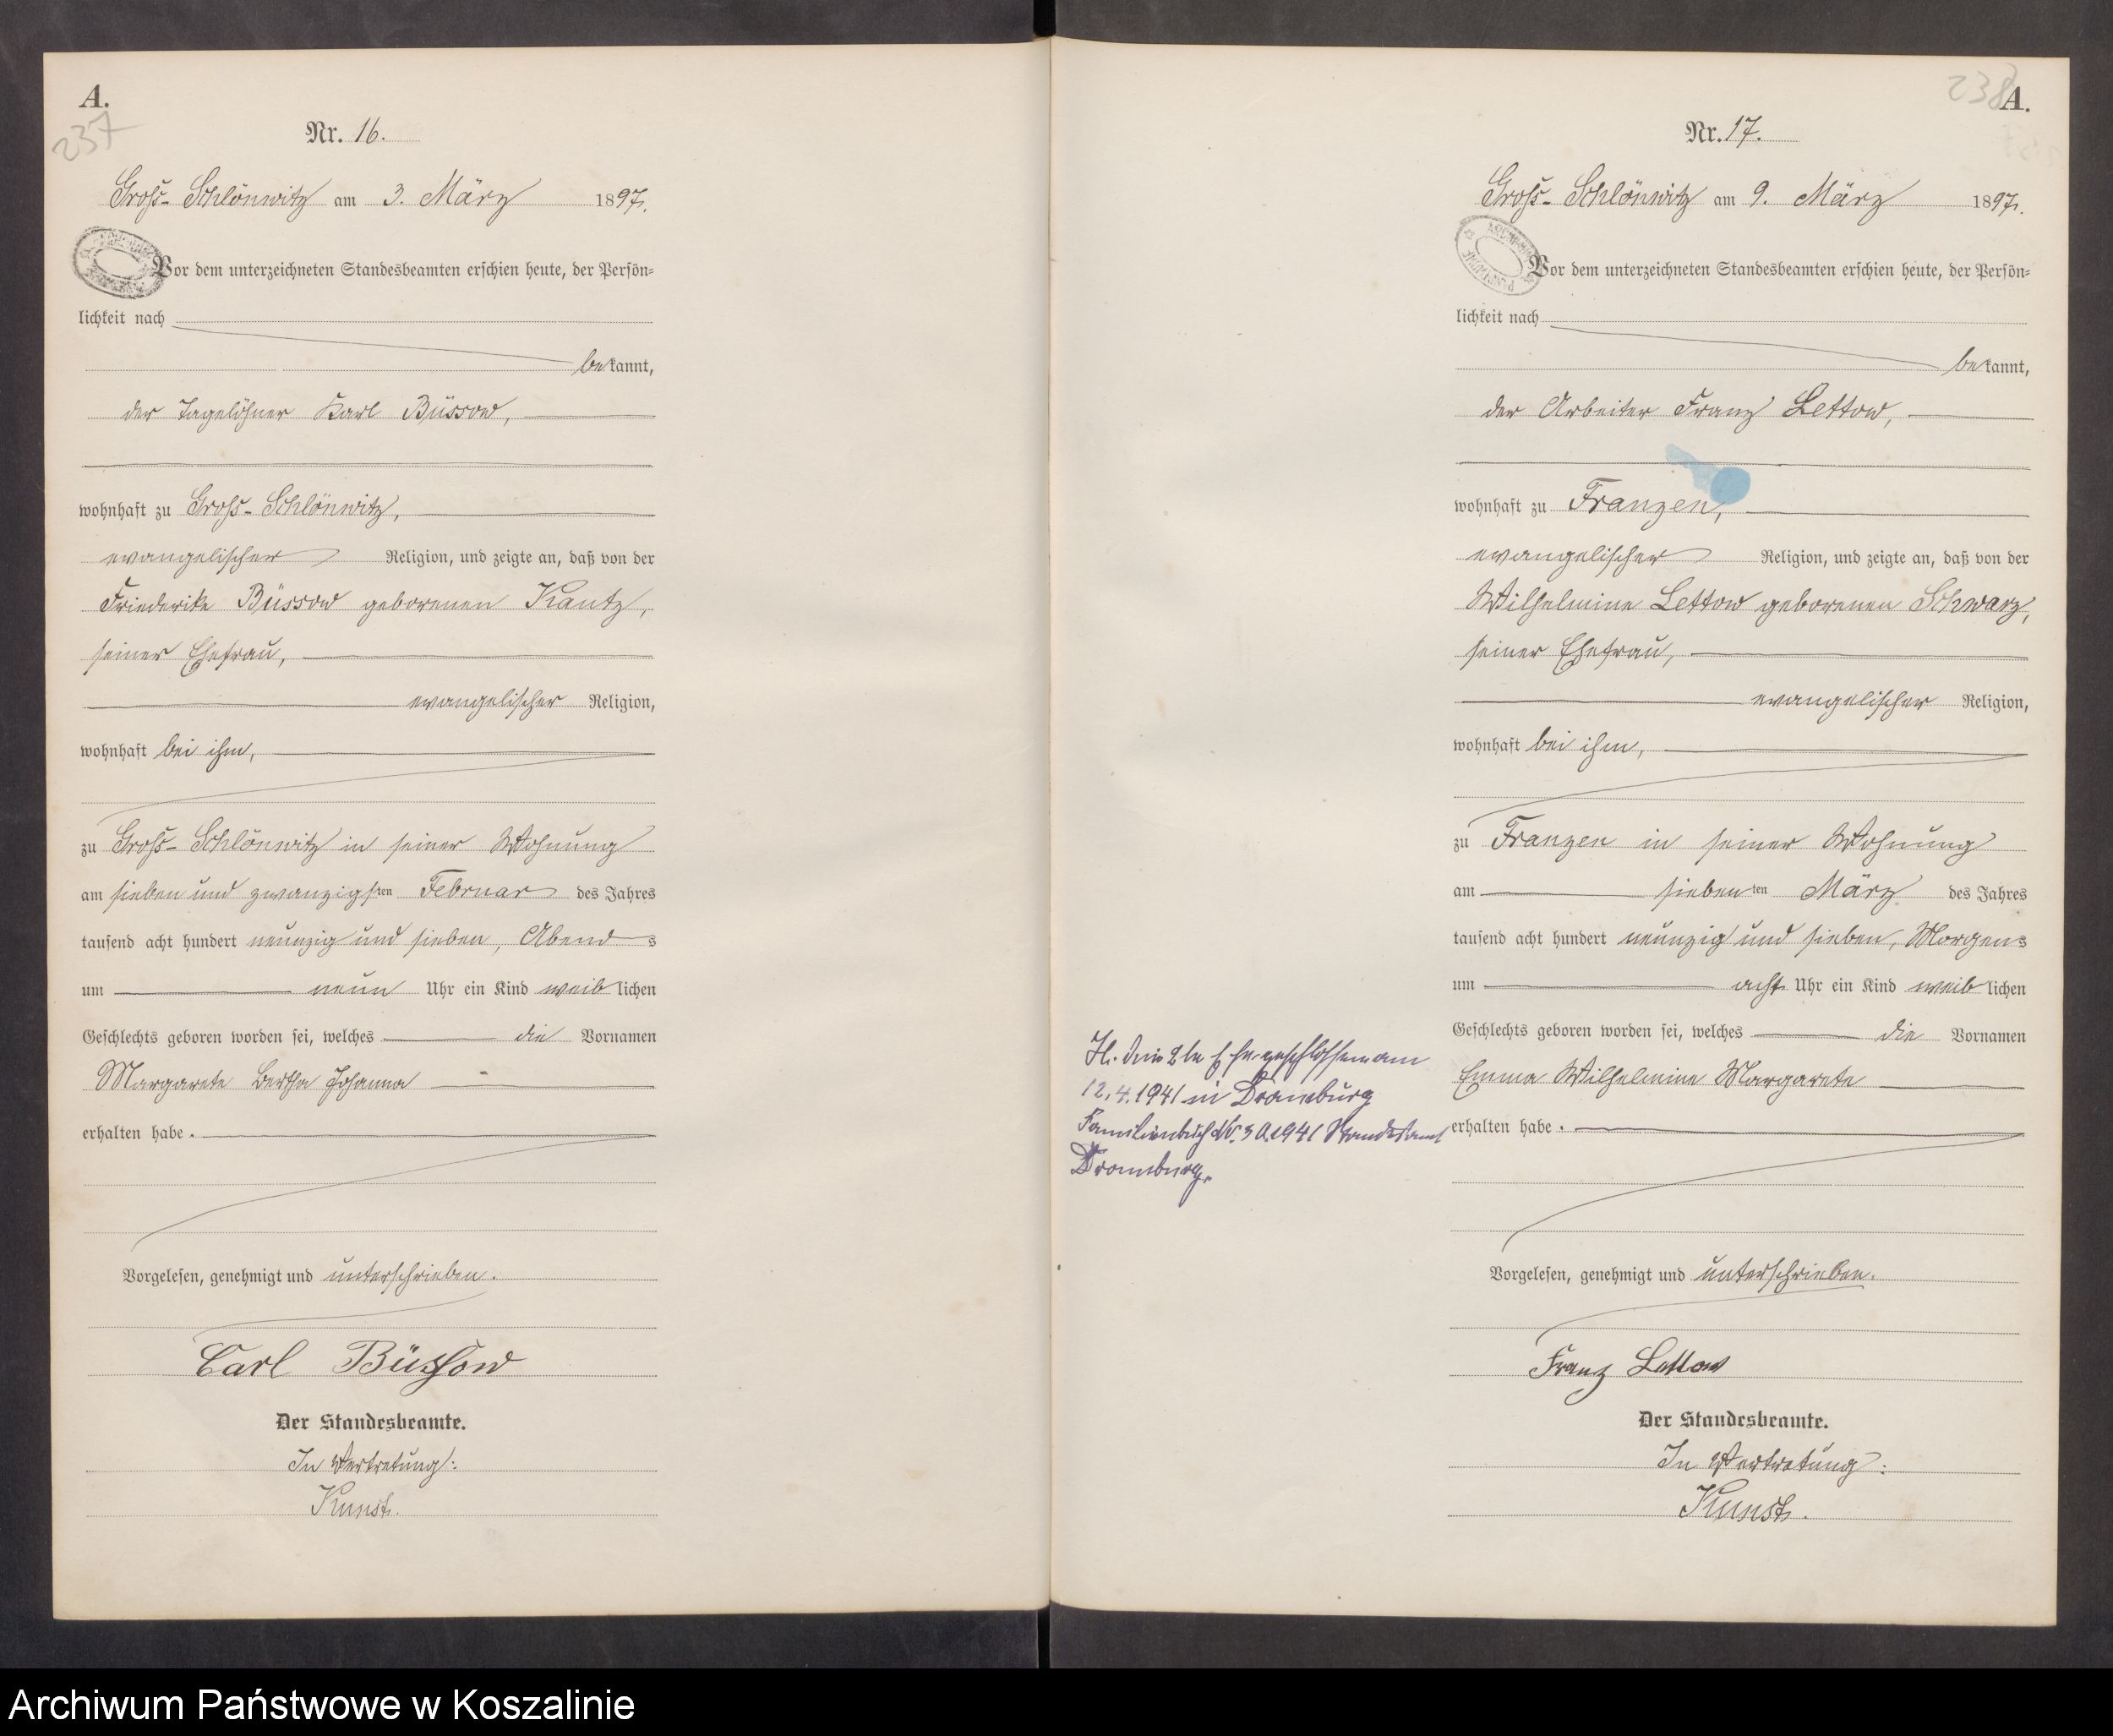 A.
237
Nr. 16.
Groß-Schlönwitz am 3. März 1897.
Vor dem unterzeichneten Standesbeamten erschien heute, der Persön=
lichkeit nach
bekannt,
der Tagelöhner Karl Büssow,
wohnhaft zu Groß-Schlönwitz,
evangelischer Religion, und zeigte an, daß von der
Friederike Büssow geborenen Kautz,
seiner Ehefrau,
evangelischer Religion,
wohnhaft bei ihm,
zu Groß-Schlönwitz in seiner Wohnung
am sieben und zwanzigsten Februar des Jahres
tausend acht hundert neunzig und sieben, Abends
um neun Uhr ein Kind weiblichen
Geschlechts geboren worden sei, welches die Vornamen
Margarete Bertha Johanna
erhalten habe.
Vorgelesen, genehmigt und unterschrieben.
Carl Büssow
Der Standesbeamte.
In Vertretung:
Kunst.
238
A.
Nr. 17.
Groß-Schlönwitz am 9. März 1897.
Vor dem unterzeichneten Standesbeamten erschien heute, der Persön=
lichkeit nach
bekannt,
der Arbeiter Franz Lettow,
wohnhaft zu Franzen,
evangelischer Religion, und zeigte an, daß von der
Wilhelmine Lettow geborenen Schwarz,
seiner Ehefrau,
evangelischer Religion,
wohnhaft bei ihm,
zu Franzen in seiner Wohnung
am siebenten März des Jahres
tausend acht hundert neunzig und sieben, Morgens
um acht Uhr ein Kind weiblichen
Geschlechts geboren worden sei, welches die Vornamen
Emma Wilhelmine Margarete
erhalten habe.
Vorgelesen, genehmigt und unterschrieben.
Franz Lettow
Der Standesbeamte.
In Vertretung:
Kunst.
Ehe geschlossen am
12.4.1941 in Dramburg
Familienbuch Nr. 1941 Standesamt
Dramburg.
Archiwum Państwowe w Koszalinie